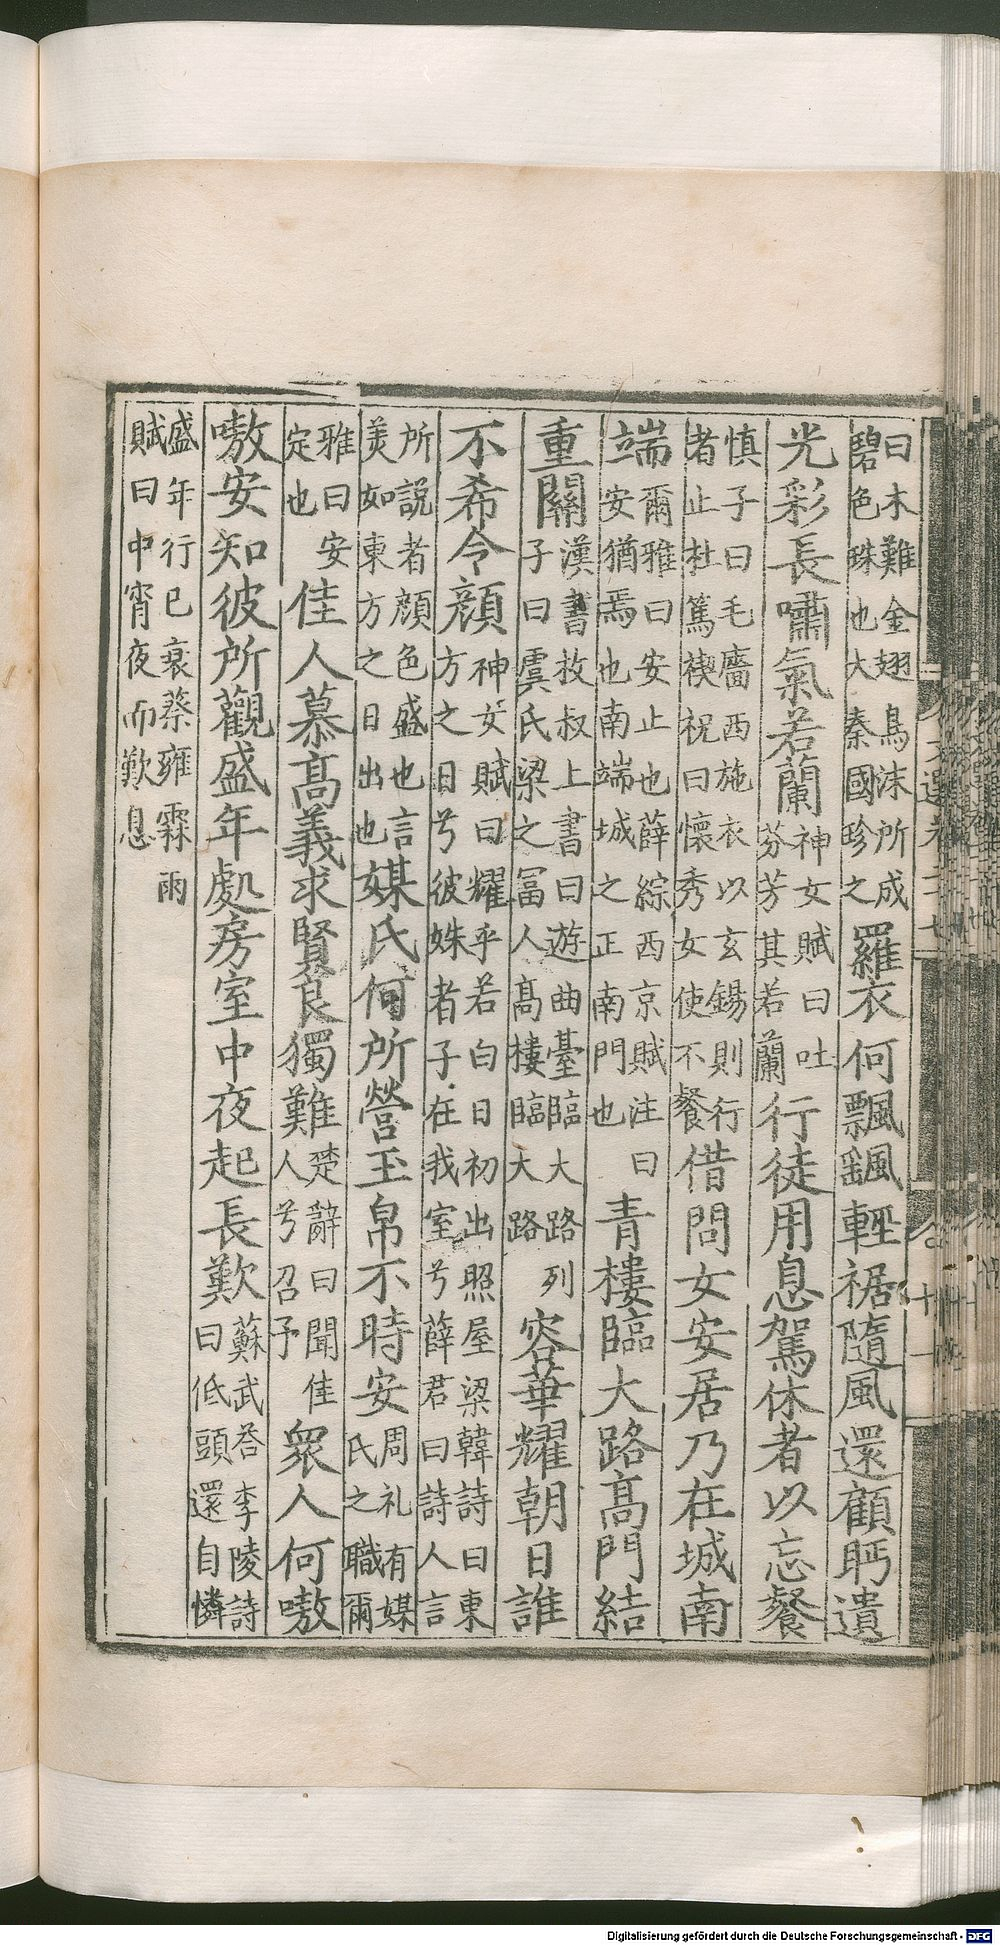 曰木難金翅鳥沫所成碧色珠也大秦國珍之羅衣何飄飖輕裾隨風還顧眄遺
光彩長嘯氣若蘭神女賦曰吐芬芳其若蘭行徒用息駕休者以忘餐
慎子曰毛嬙西施衣以玄錫則行者止杜篤禊祝曰懷秀女使不餐借問女安居乃在城南
端爾雅曰安止也薛綜西京賦注曰安猶焉也南端城之正南門也青樓臨大路高門結
重關漢書枚叔上書曰遊曲臺臨大路列子曰虞氏梁之冨人高樓臨大路容華耀朝日誰
不希令顏神女賦曰耀乎若白日初出照屋梁韓詩曰東方之日兮彼姝者子在我室兮薛君曰詩人言
所説者顔色盛也言美如東方之日出也媒氏何所營玉帛不時安周礼有媒氏之職爾
雅曰安定也佳人慕高義求賢良獨難楚辭曰聞佳人兮召予衆人何嗷
嗷安知彼所觀盛年處房室中夜起長歎蘇武荅李陵詩曰低頭還自憐
盛年行已衰蔡雍霖雨賦曰中宵夜而歎息
Digitalisierung gefördert durch die Deutsche Forschungsgemeinschaft - DFG